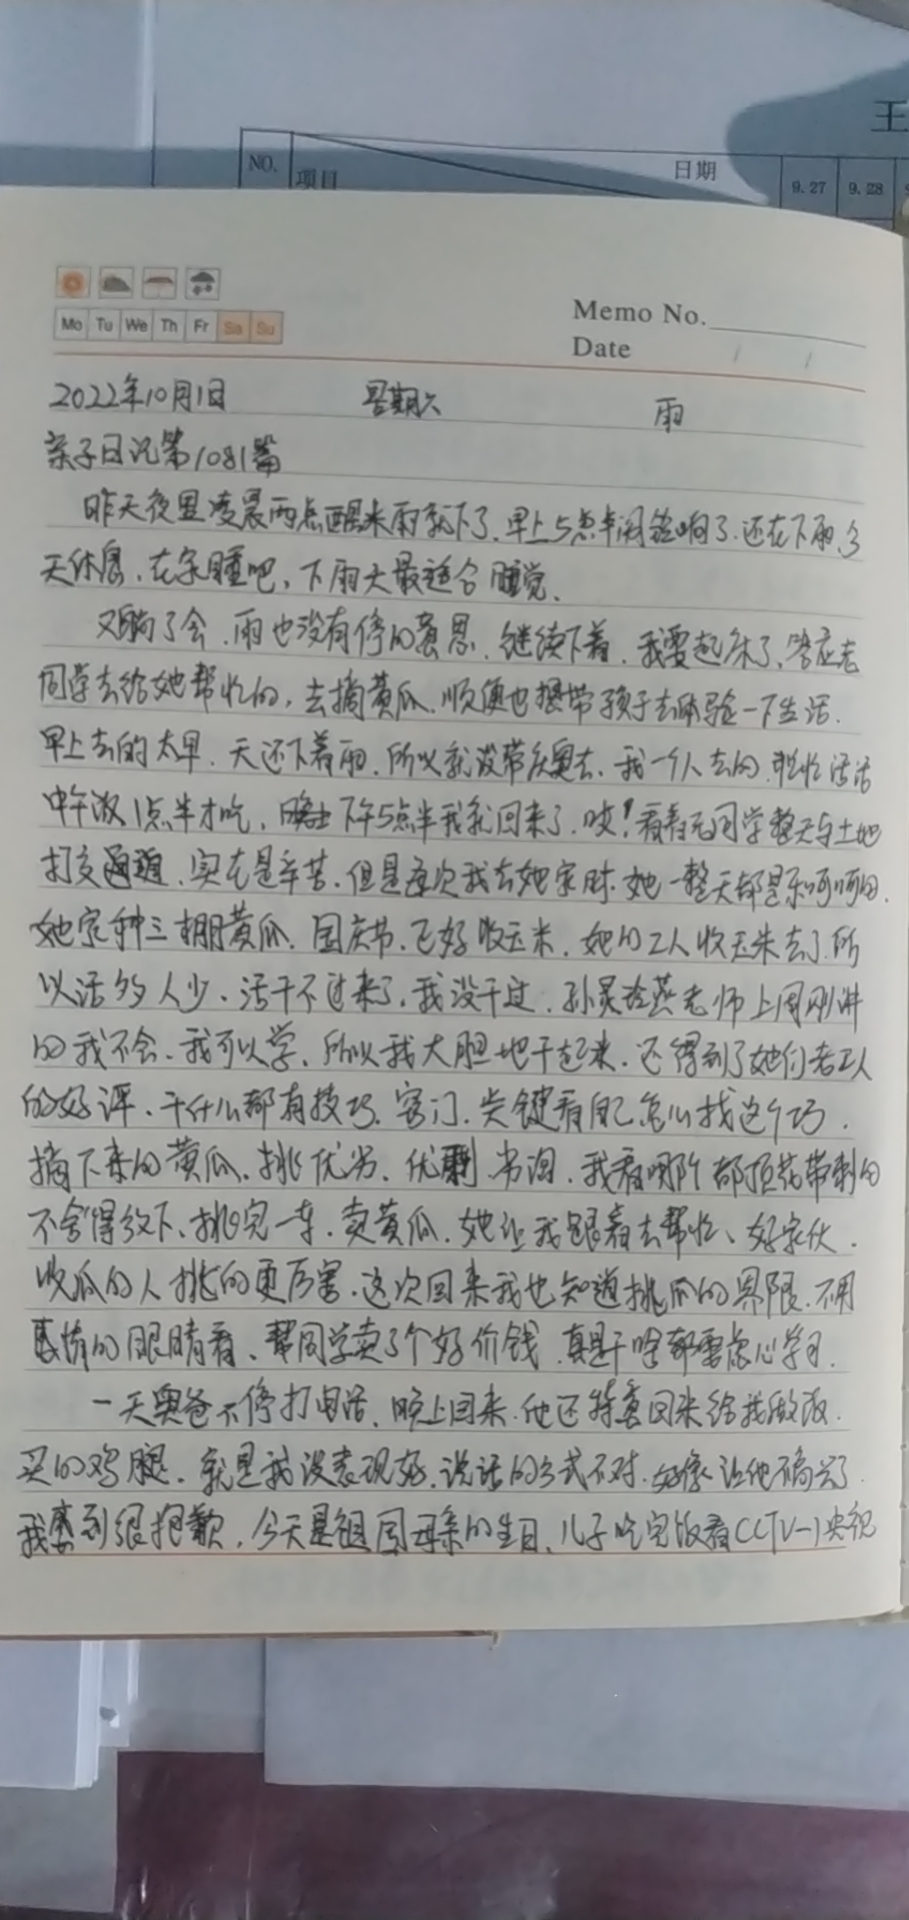 王
NO. 项目 日期 9.27 9.28
Mo Tu We Th Fr Sa Su
Memo No.
Date / /
2022年10月1日 星期六 雨
亲子日记第1081篇
昨天夜里凌晨两点醒来雨就下了,早上5点半闹铃响了,还在下雨,今
天休息,在多睡吧,下雨天最适合睡觉。
又躺了会,雨也没有停的意思,继续下着,我要起床了,答应老
同学去给她帮忙的,去摘黄瓜,顺便也想带孩子去体验一下生活,
早上去的太早,天还下着雨,所以就没带庆奥去,我一个人去的,忙忙活活
中午饭1点半才吃,晚上下午5点半我就回来了,哎!看着老同学整天与土地
打交道,实在是辛苦,但是每次我去她家时,她一整天都是乐呵呵的,
她家种三棚黄瓜,国庆节,正好收玉米,她的工人收玉米去了,所
以活多人少,活干不过来了,我没干过,孙灵玲燕老师上周刚讲
的我不会,我可以学,所以我大胆地干起来,还得到了她们老工人
的好评,干什么都有技巧,窍门,关键看自己怎么找这个巧,
摘下来的黄瓜,挑优劣,优剩劣淘,我看哪个都顶花带刺的
不舍得放下,挑完一车,卖黄瓜,她让我跟着去帮忙、好家伙,
收瓜的人挑的更厉害,这次回来我也知道挑瓜的界限,不用
感情的眼睛看、帮同学卖了个好价钱,真是干啥都需虚心学习,
一天奥爸不停打电话,晚上回来,他还特意回来给我做饭,
买的鸡腿,就是我没表现好,说话的方式不对,好像让他不高兴了
我感到很抱歉,今天是祖国母亲的生日、儿子吃完饭看CCTV-1央视